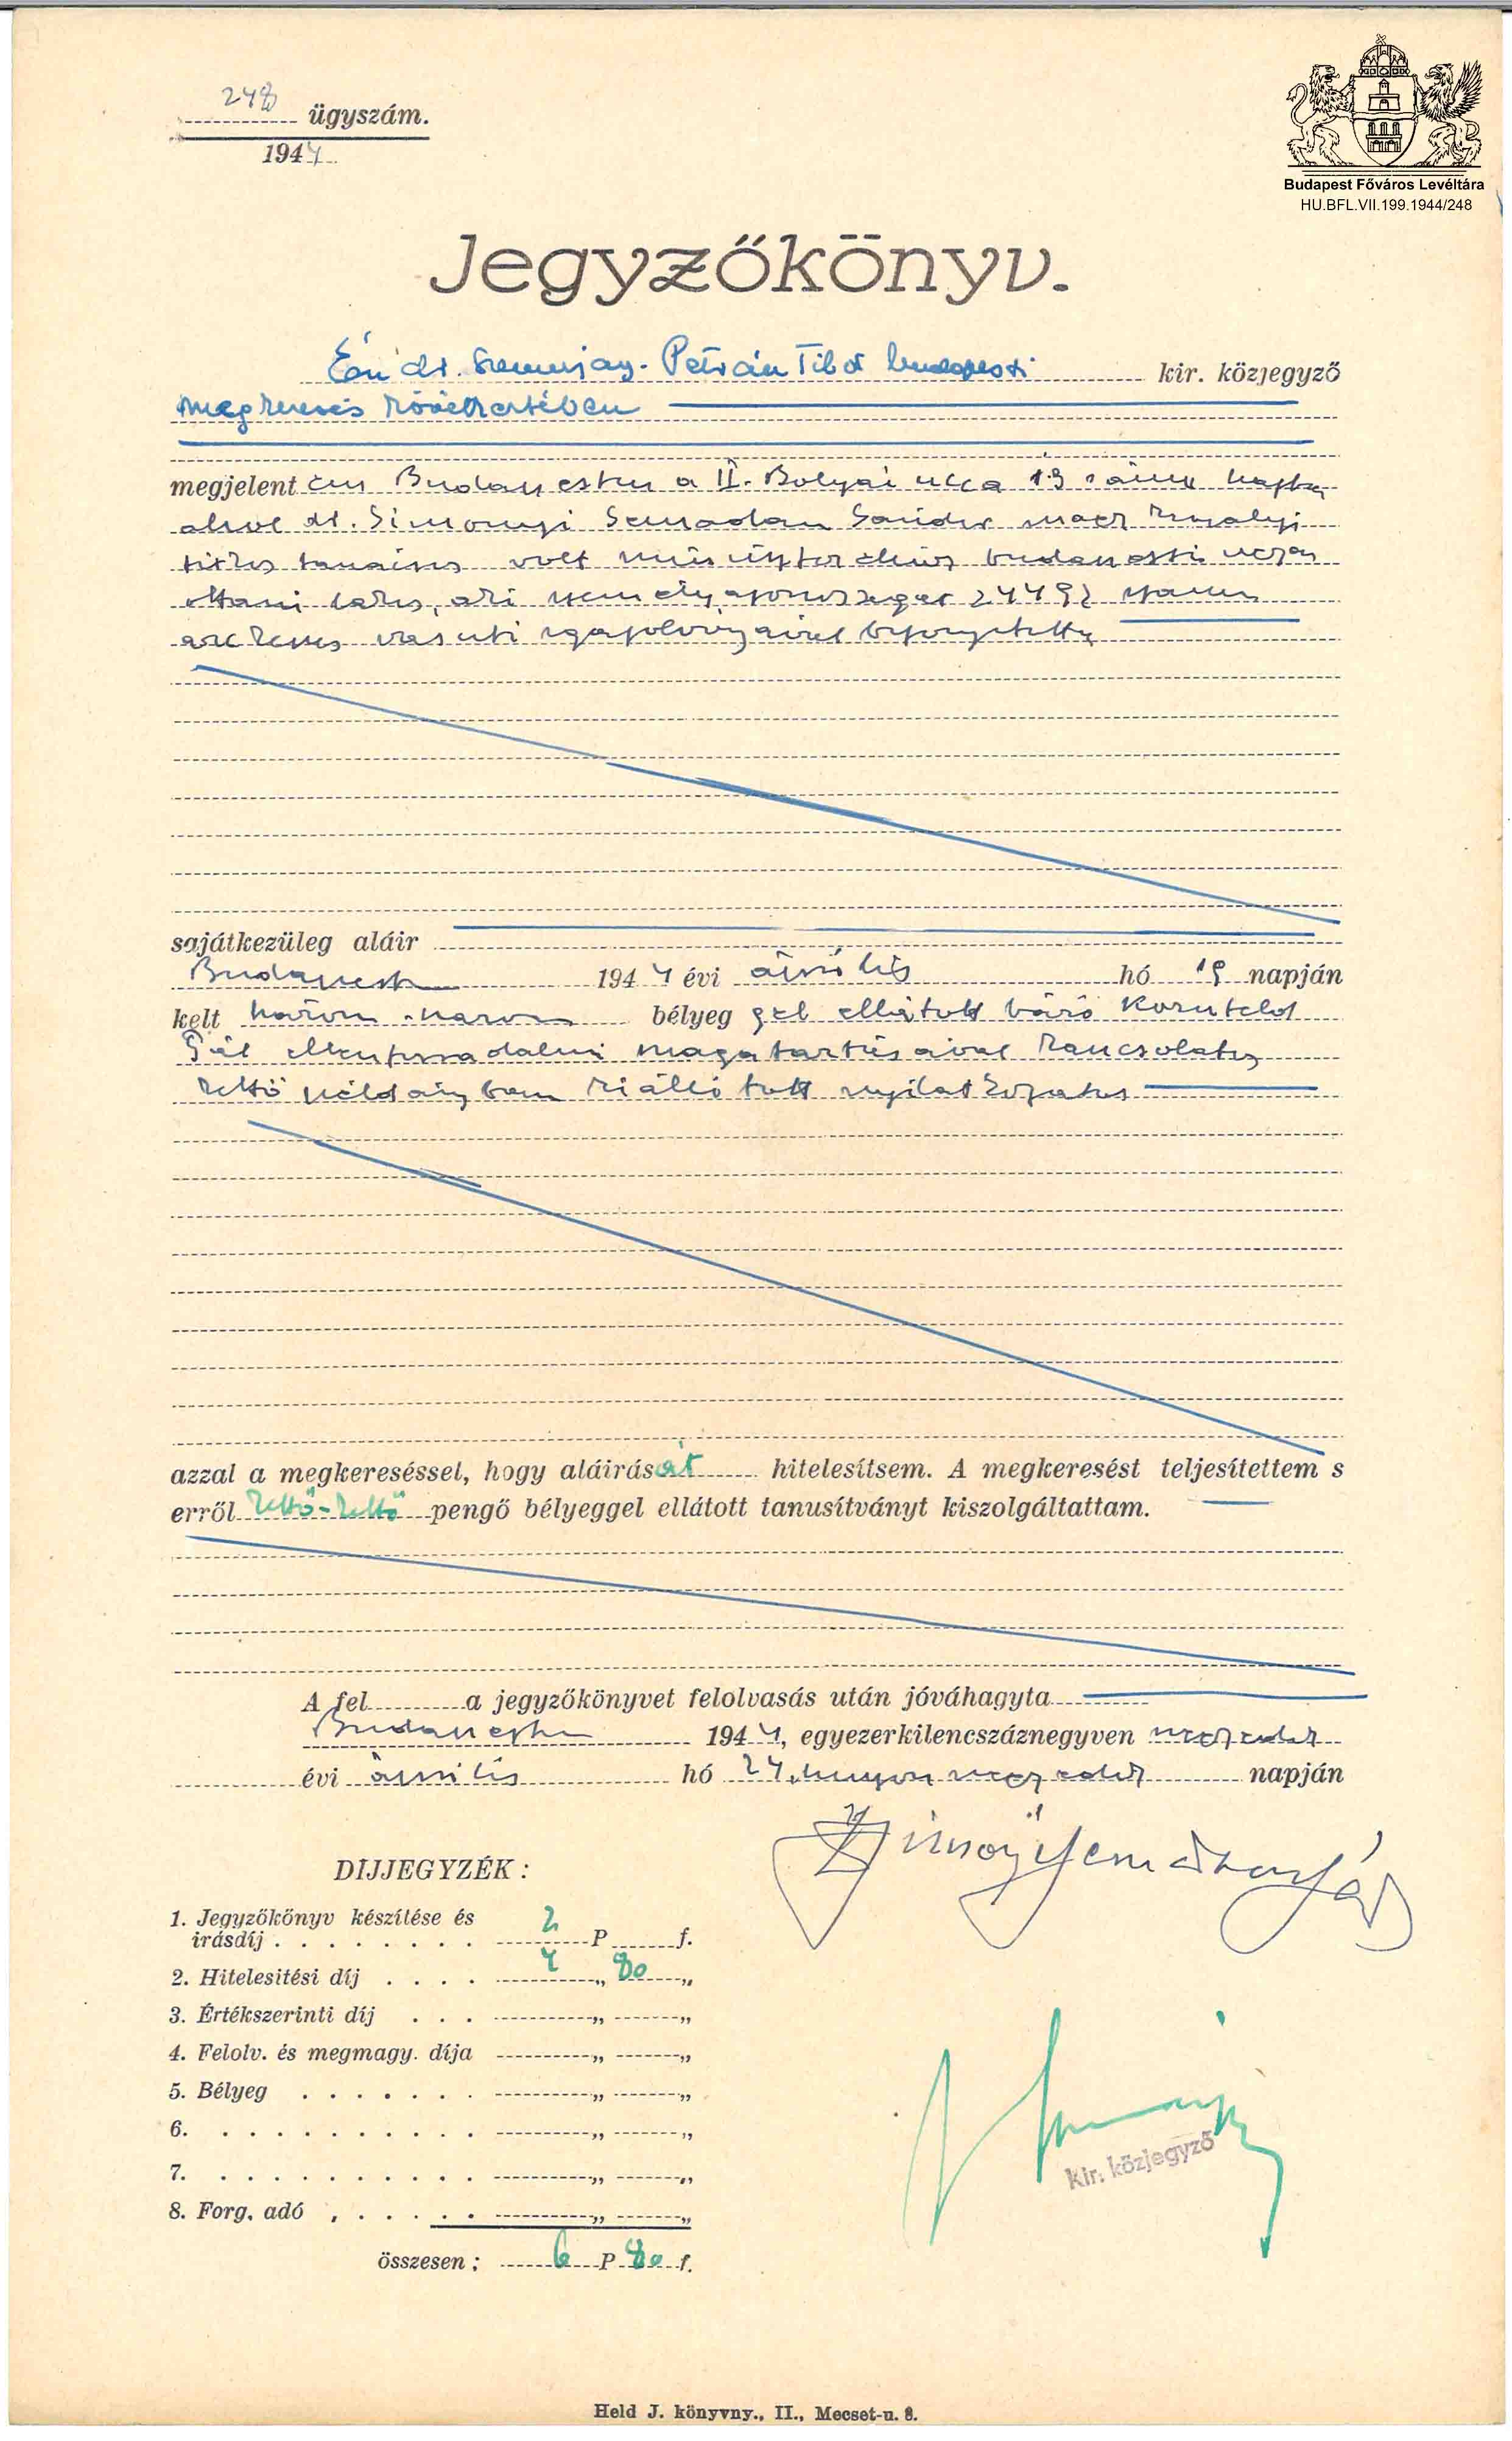 248 ügyszám.
1944
Budapest Főváros Levéltára
HU.BFL.VII.199.1944/248
Jegyzőkönyv.
Én dr. Petrán Tibor budapesti kir. közjegyző
megkeresés következtében
megjelentem Budapesten a II. Bolyai utca 13 számú házba
ahol dr. Simonyi Semadam Sándor magy. királyi
titkos tanácsos volt miniszterelnök budapesti
lakos, aki személyazonosságát 24492 számú
arcképes vasuti igazolványával
sajátkezüleg aláir
Budapesten 1944 évi április hó 19 napján
kelt három-három bélyeggel ellátott báró Kornfeld
Pál magatartásával kapcsolatos
kettő példányban kiállított nyilatkozatot
azzal a megkereséssel, hogy aláirását hitelesítsem. A megkeresést teljesítettem s
erről kettő-kettő pengő bélyeggel ellátott tanusítványt kiszolgáltattam.
A fel a jegyzőkönyvet felolvasás után jóváhagyta
Budapesten 1944, egyezerkilencszáznegyven negyedik
évi április hó 24, huszonnegyedik napján
DÍJJEGYZÉK:
1. Jegyzőkönyv készítése és
irásdíj . . . . . . . . 2 P f.
2. Hitelesitési díj . . . . 4 „ 80 „
3. Értékszerinti díj . . . „ „
4. Felolv. és megmagy. díja „ „
5. Bélyeg . . . . . . . „ „
6. . . . . . . . . . . „ „
7. . . . . . . . . . . „ „
8. Forg. adó . . . . . . „ „
összesen: 6 P 80 f.
kir. közjegyző
Held J. könyvny., II., Mecset-u. 8.